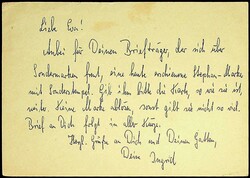 Liebe Eva!
Anbei für Deinen Briefträger, der sich über
Sondermarken freut, eine heute erschienene Stephan-Marke
mit Sonderstempel. Gib ihm bitte die Karte, so wie sie ist,
weiter. Keine Marke ablösen, sonst gilt sie nicht so viel.
Brief an Dich folgt in aller Kürze.
Herzl. Grüße an Dich und Deinen Gatten,
Deine Ingrid